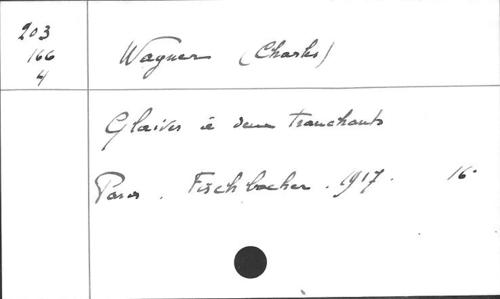 203
166
4
Wagner (Charles)
Glaives à deux tranchants
Paris. Fischbacher. 1917. 16°